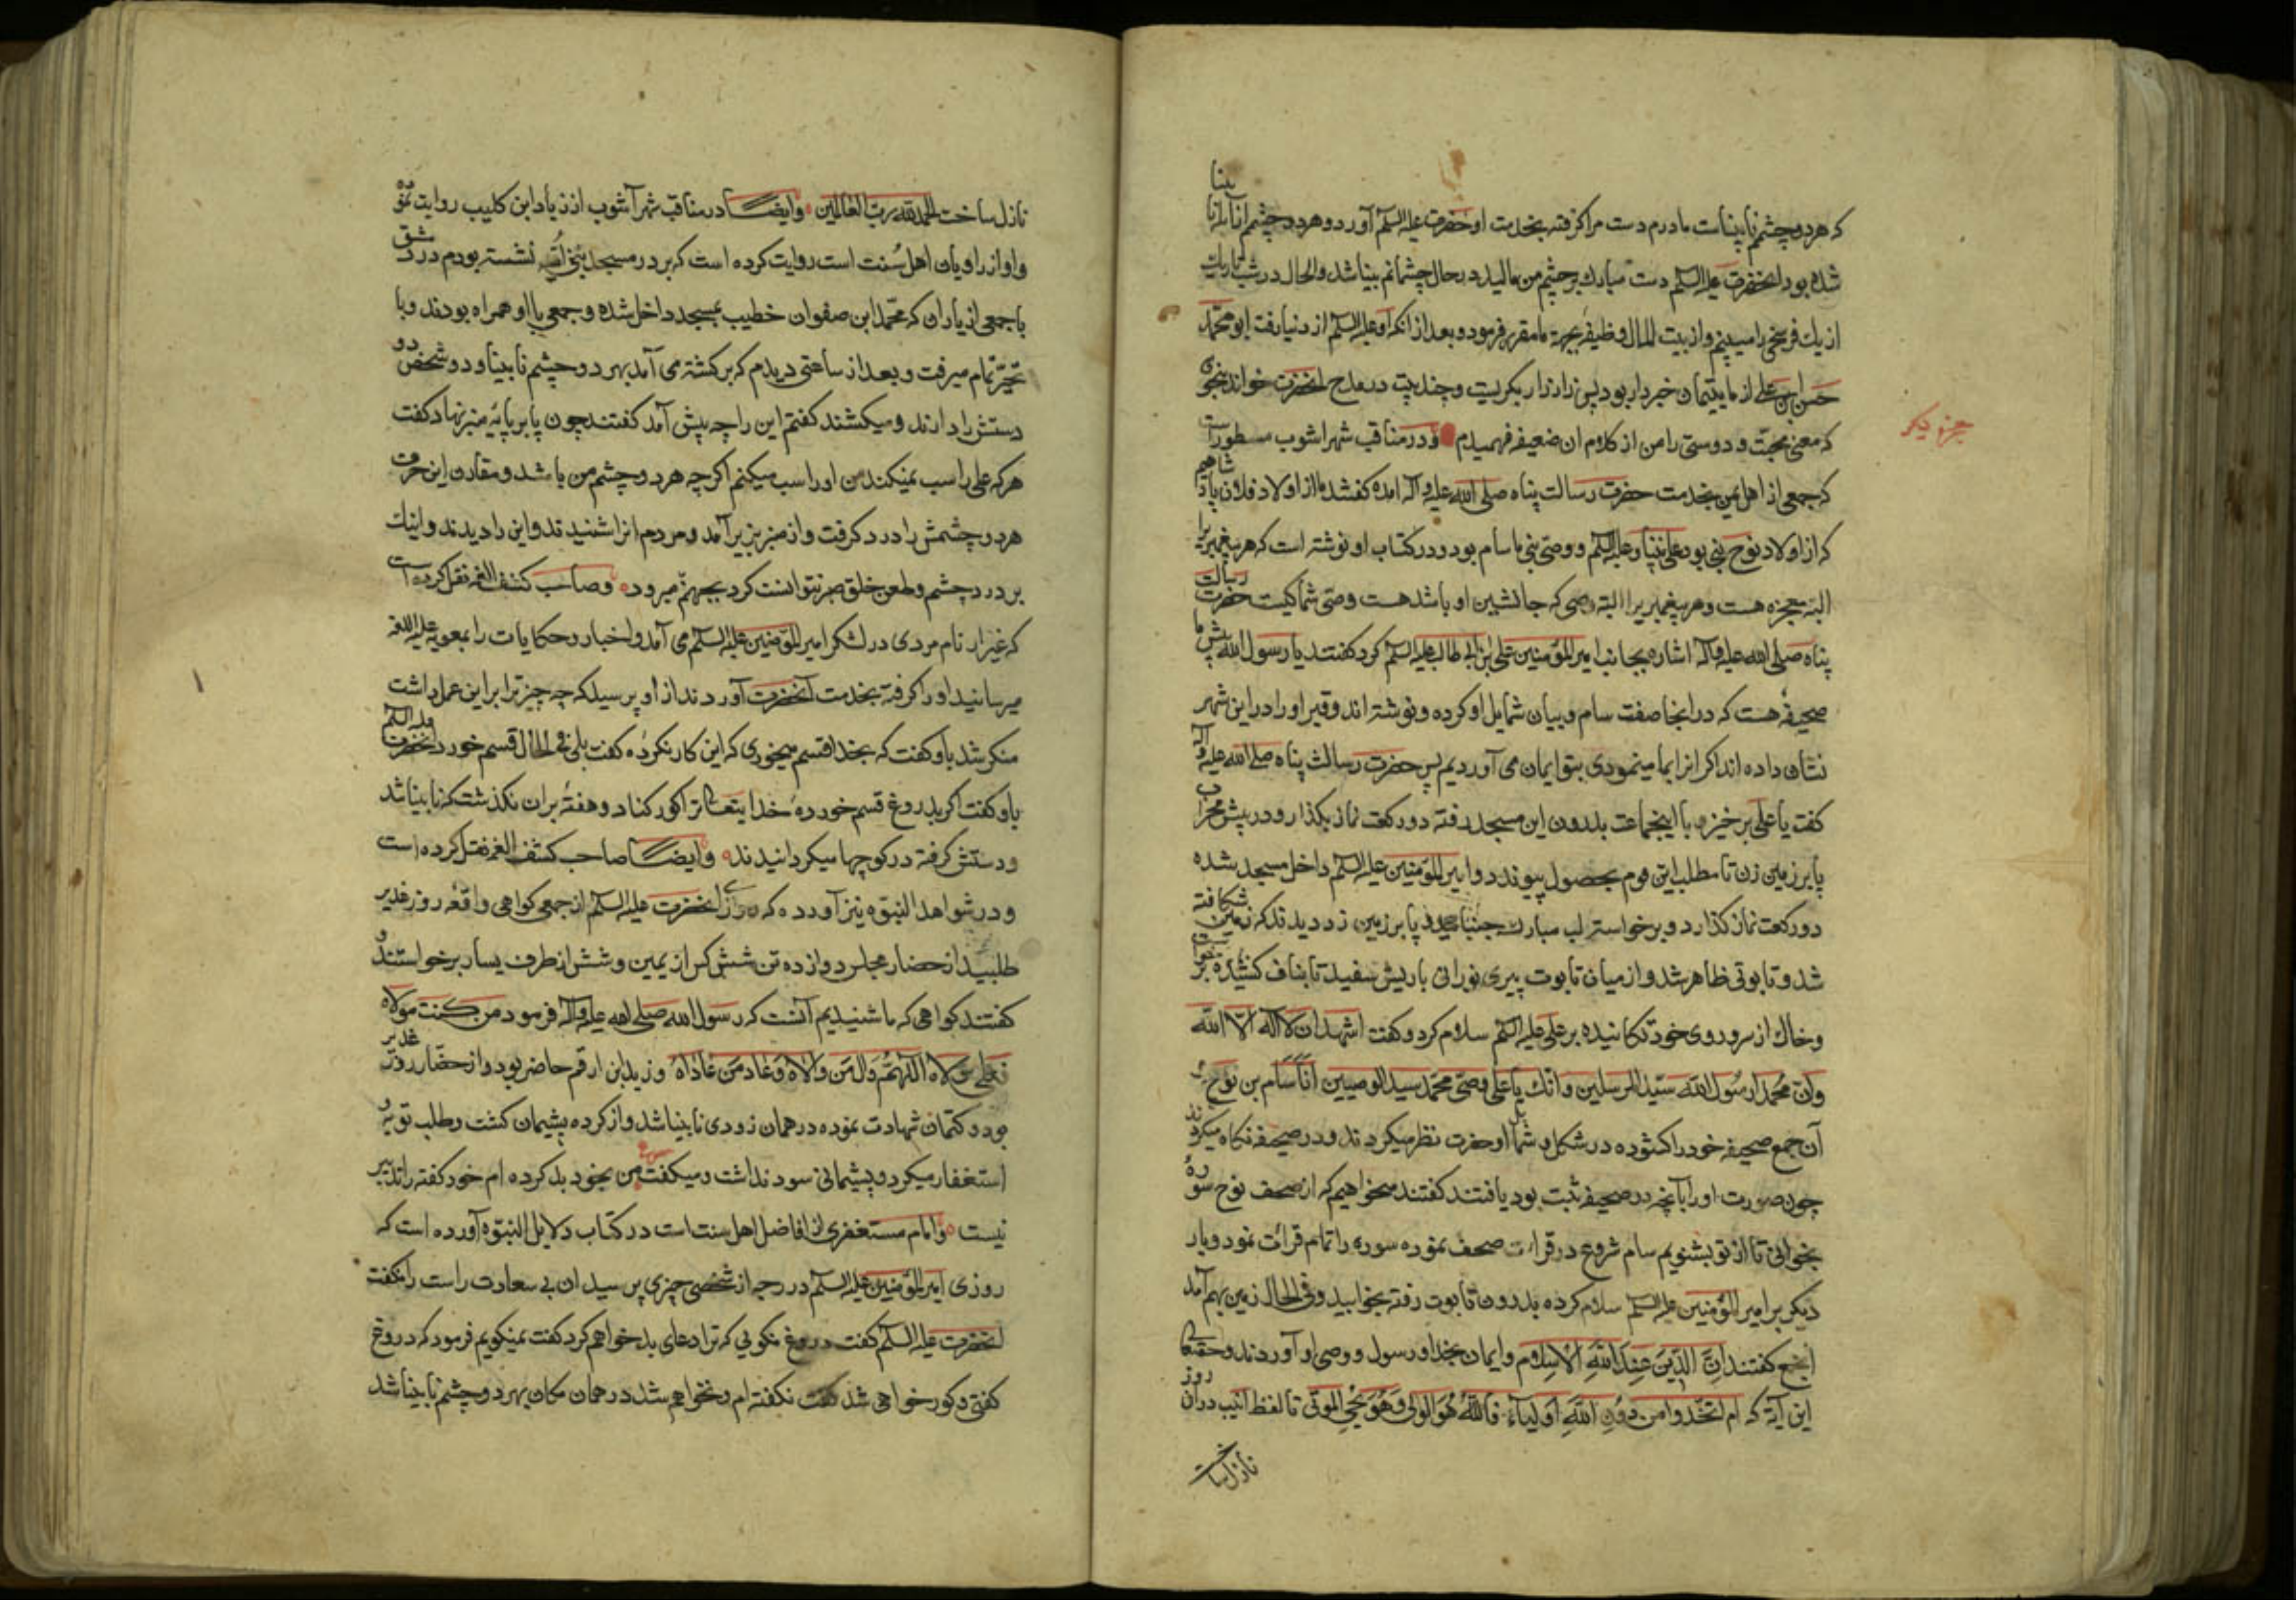 که هر دو چشم نابیناست مادرم دست مرا گرفته بخدمت او حضرت علیه السلم آورد و هر دو چشم انا بینا
شده بود انحضرت علیه السلم دست مبارک بر چشم من مالید در حال چشمانم بینا شد والحال در شب تاریک
از یک فرسخی را میبینم و از بیت المال وظیفهٔ بجهة ما مقرر فرمود و بعد از انکه او علیه السلم از دنیا رفت ابو محمد
حسن ابن علی از ما یتیمان خبردار بود پس زار زار بکریست و چند بیت در مدح انحضرت خواند بنحوی
که معنی محبت و دوستی را من از کلام ان ضعیفه فهمیدم و در مناقب شهراشوب مسطور است
جز دیکر
که جمعی از اهل یمن بخدمت حضرت رسالت پناه صلی الله علیه و آله امده کفتند ما از اولاد فلان پادشاهیم
که از اولاد نوح نبی بود علی نبینا و علیه السلم و وصی نبی ما سام بود و در کتاب او نوشته است که هر پیغمبریرا
البته معجزه هست و هر پیغمبریرا البته وصی که جانشین او باشد هست وصی شما کیست حضرت رسالت
پناه صلی الله علیه و آله اشاره بجانب امیر المؤمنین علی بن ابی طالب علیه السلم کرد کفتند یا رسول الله پیش ما
صحیفهٔ هست که در انجا صفت سام و بیان شمایل او کرده و نوشته اند و قبر او را در این شهر
نشان داده اند اکر انرا بما مینمودی بتو ایمان می آوردیم پس حضرت رسالت پناه صلی الله علیه و آله
کفت یا علی برخیز و با اینجماعت بدرون این مسجد رفته دو رکعت نماز بکذار و در پیش محراب
پا بر زمین زن تا مطلب این قوم بحصول پیوندد و امیر المؤمنین علیه السلم داخل مسجد شده
دو رکعت نماز کذارد و برخواسته لب مبارک جنبانید و پا بر زمین زد دیدند که زمین شکافته
شد و تابوتی ظاهر شد و از میان تابوت پیری نورانی با ریش سفید تا بناف کشیده برخواست
و خاک از سر و روی خود تکانیده بر علی علیه السلم سلام کرد و کفت اشهد ان لا اله الا الله
وان محمدا رسول الله سید المرسلین وانک یا علی وصی محمد سید الوصیین انا سام بن نوح
آن جمع صحیفه خود را کشوده در شکل و شمایل اوحضرت نظر میکردند و در صحیفه نکاه میکردند
چون صورت او را بآنچه در صحیفه ثبت بود یافتند کفتند میخواهیم که از صحف نوح سورهٔ
بخوانی تا از تو بشنویم سام شروع در قرائت صحف نموده سوره را تمام قرائت نمود و بار
دیکر بر امیر المؤمنین علیه السلم سلام کرده بدرون تابوت رفته بخوابید و فی الحال زمین بهم آمد
انجمع کفتند اِنَّ الدّینَ عِندَ اللهِ الاِسلام وایمان بخدا و رسول و وصی او آوردند و حقتعالی
این آیة که ام اتخذوا من دون اللهِ اَولیاءَ فاللهُ هُوَ الولی وَهُوَ یُحیِی المَوتی تا لفظ انیب در آن روز
نازل ساخت
نازل ساخت الحمد لله رب العالمین وایضا در مناقب شهرآشوب از زیاد ابن کلیب روایت نموده
و او از راویان اهل سُنت است روایت کرده است که بر در مسجد بنی امیه نشسته بودم در دمشق
با جمعی از یاران که محمد ابن صفوان خطیب بمسجد داخل شده و جمعی با او همراه بودند و با
تحیر تمام میرفت و بعد از ساعتی دیدم که برکشته می آمد بهر دو چشم نابینا و دو شخص دو
دستش را دارند و میکشند کفتم این را چه پیش آمد کفتند چون پا بر پایهٔ منبر نهاد کفت
هر که علی را سب نمیکند من او را سب میکنم اکرچه هر دو چشم من باشد و مقارن این حرف
هر دو چشمش را درد کرفت و از منبر بزیر آمد و مردم انرا شنیدند و این را دیدند و اینک
بر درد چشم و طعن خلق صبر نتوانست کرد بجهنم میرود و صاحب کشف الغمه نقل کرده است
که غیزار نام مردی در لشکر امیر المؤمنین علیه السلم می آمد و اخبار و حکایات را بمعویه علیه اللعنه
میرسانید او را کرفته بخدمت آنحضرت آوردند از او پرسید که چه چیز ترا بر این عمل داشت
منکر شد باو کفت که بخدا قسم میخوری که این کار نکردهٔ کفت بلی فی الحال قسم خورد انحضرت علیه السلم
باو کفت اکر بدروغ قسم خوردهٔ خدایتعالی ترا کور کناد و هفتهٔ بران نکذشت که نابینا شد
و دستش کرفته در کوچها میکردانیدند وایضا صاحب کشف الغمه نقل کرده است
و در شواهد النبوه نیز آورده که روزی انحضرت علیه السلم از جمعی کواهی واقعهٔ روز غدیر
طلبید از حضار مجلس دوازده تن شش کس از یمین و شش از طرف یسار برخواستند و
کفتند کواهی که ما شنیدیم آنست که رسول الله صلی الله علیه و آله فرمود من کنت مولاه
فعلی مولاه اللّهُمَّ وَالِ مَن وَالاهُ وَعَادِ مَن عَاداهُ و زید ابن ارقم حاضر بود و از حضار روز غدیر
بود و کتمان شهادت نموده در همان زودی نابینا شد و از کرده پشیمان کشت و طلب توبه و
استغفار میکرد و پشیمانی سود نداشت و میکفت من بخود بد کرده ام خود کفته را تدبیر
نیست و امام مستغفری از افاضل اهل سنت است در کتاب دلایل النبوه آورده است که
روزی امیر المؤمنین علیه السلم در رحبه از شخصی چیزی پرسید ان بی سعادت راست را نکفت
انحضرت علیه السلم کفت دروغ نکوئی که ترا دعای بد خواهم کرد کفت نمیکویم فرمود که دروغ
کفتی و کور خواهی شد کفت نکفته ام و نخواهم شد در همان مکان بهر دو چشم نابینا شد